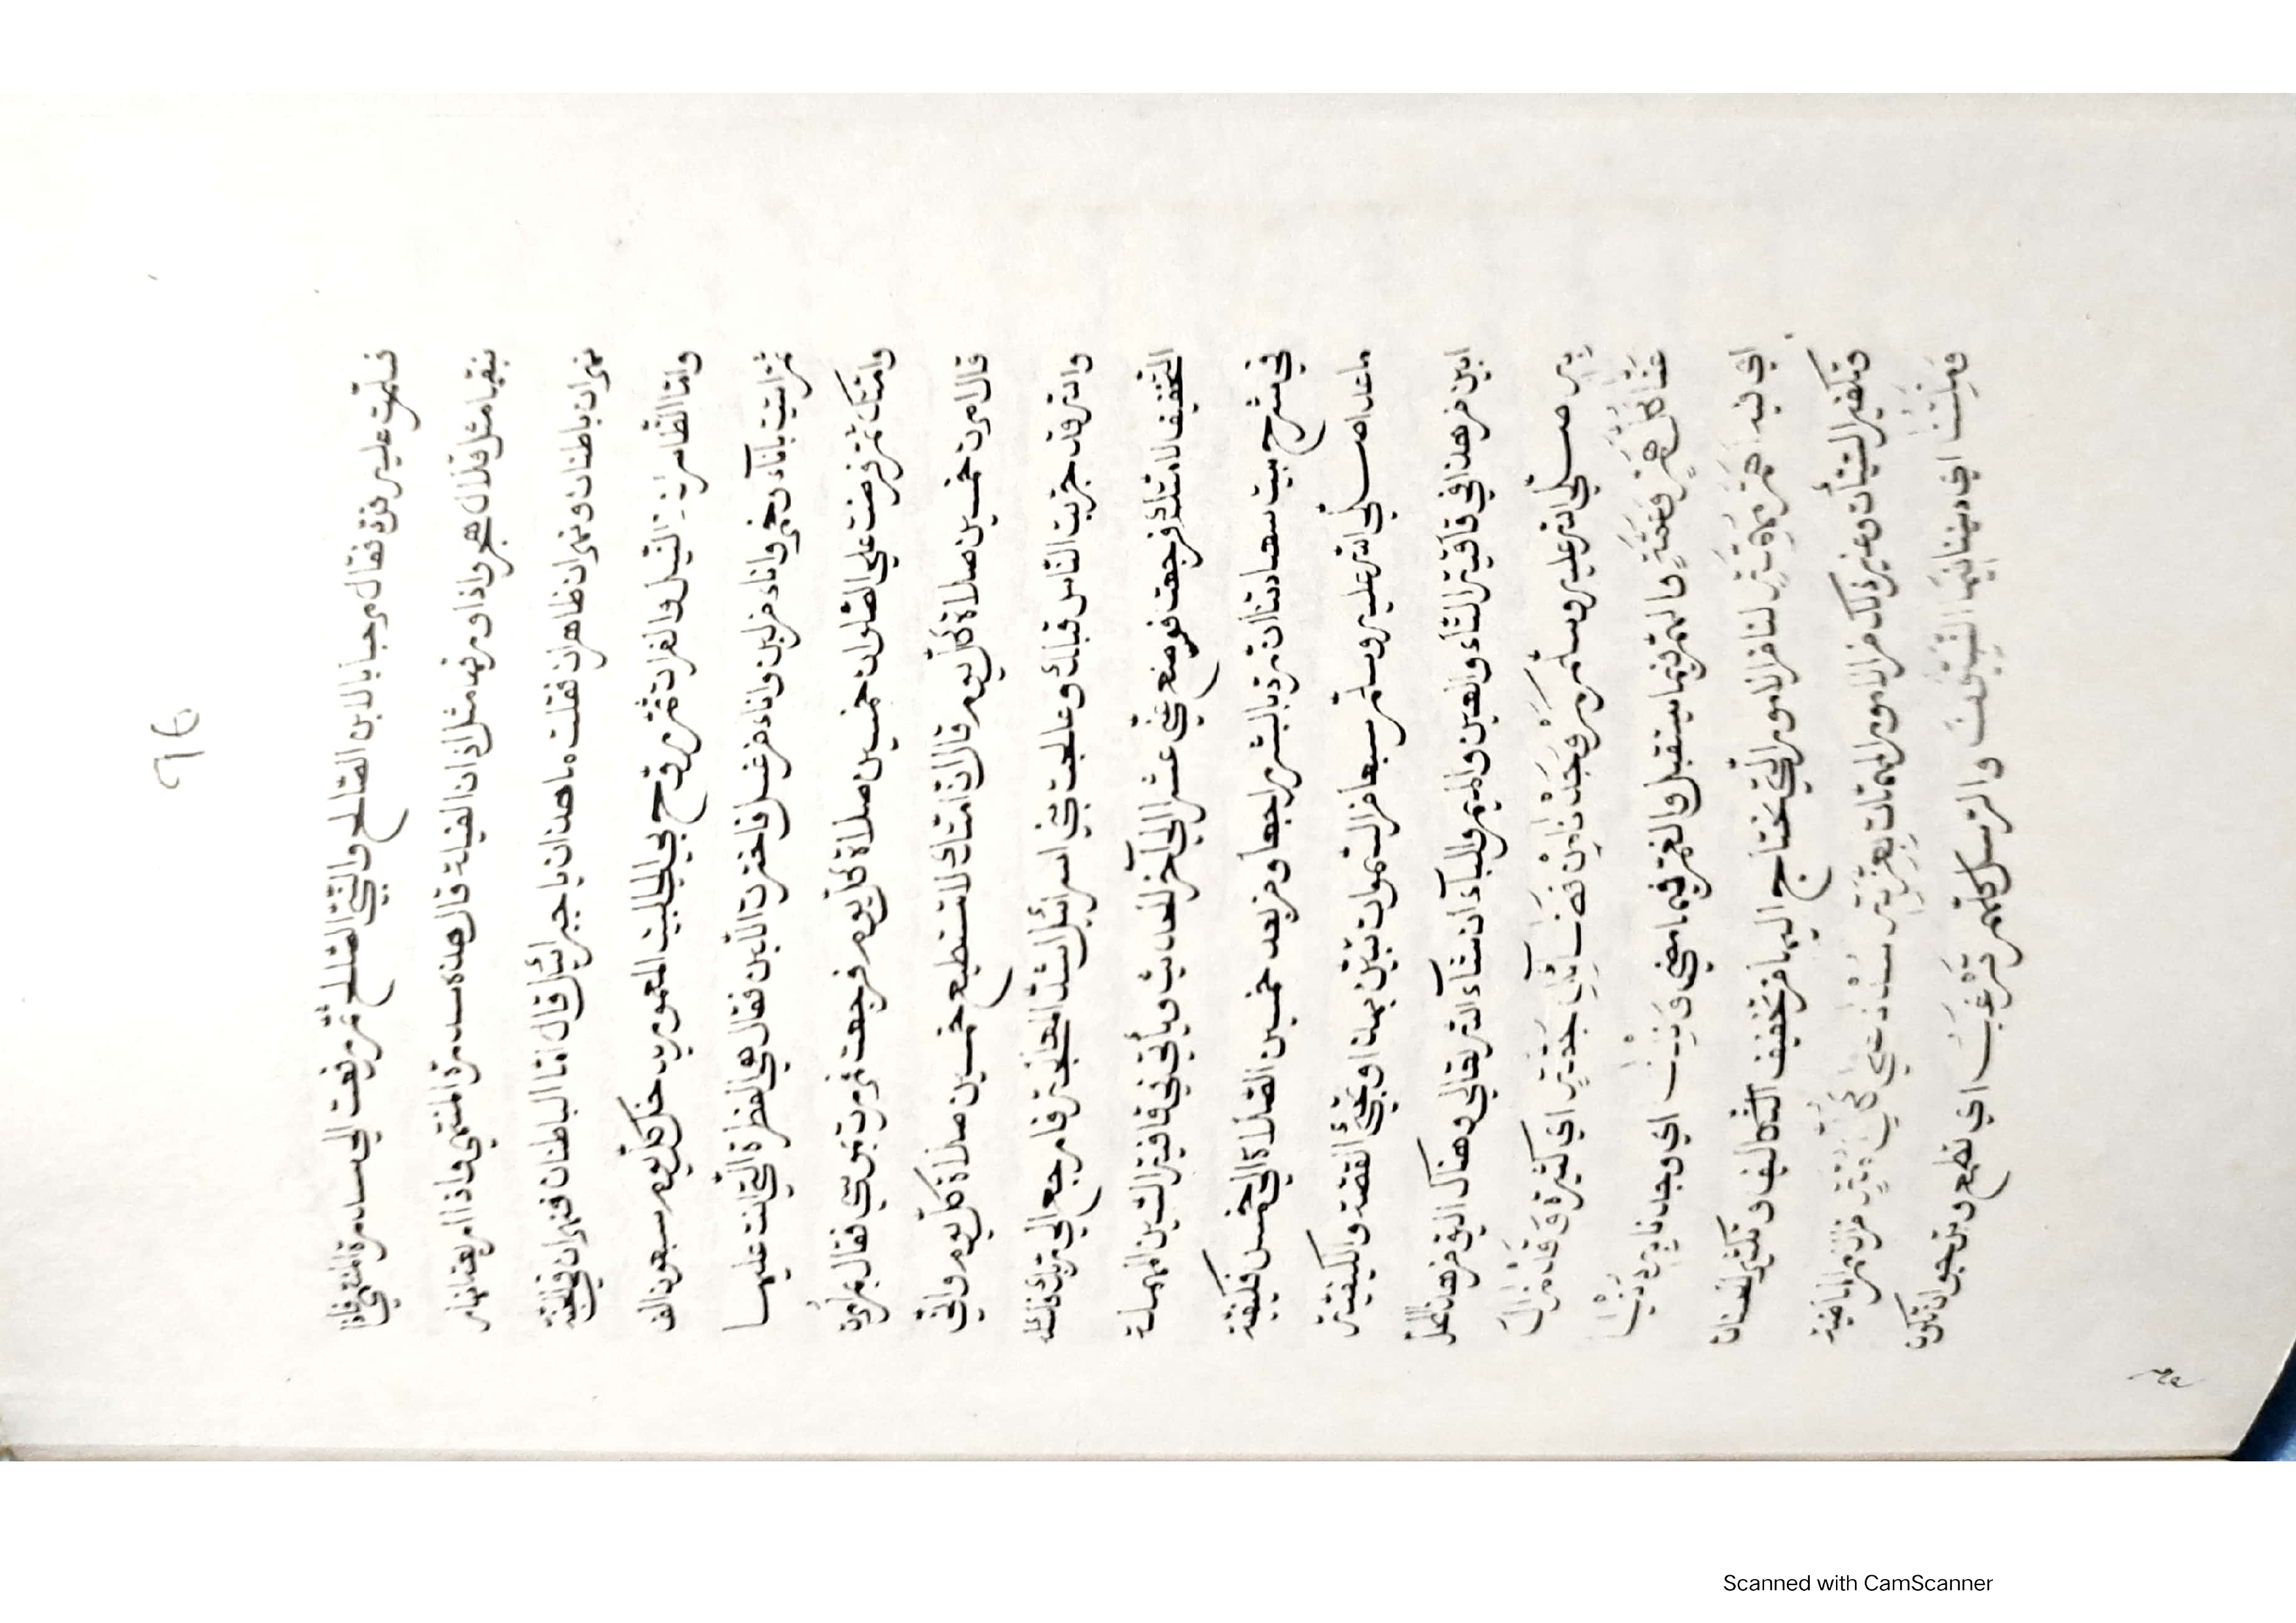 ٩٤
فسلمت عليه فرد فقال مرحبا بالابن الصالح والنبي الصالح ثم رفعت الي سدرة المنتهي فاذا
بنقها مثل قلال هجر واذا ورقها مثل اذان الفيلة قال هذه سدرة المنتهي واذا اربعة انهار
نهران باطنان ونهران ظاهران فقلت ما هذان يا جبرائيل قال اما الباطنان فنهران في الجنة
واما الظاهران النيل والفرات ثم رفع لي البيت المعمور يدخل كل يوم سبعون الف
ثم اتيت باناء من خمر واناء من لبن واناء من عسل فاخترت اللبن فقال هي الفطرة التي انت عليها
وامتك ثم فرضت علي الصلوات خمسين صلاة كل يوم فرجعت فمررت بموسي فقال بم امرت
قال امرت خمسين صلاة كل يوم قال ان امتك لا تستطيع خمسين صلاة كل يوم واني
والله قد جربت الناس قبلك وعالجت بني اسرائيل اشد المعالجة فارجع الي ربك فاسئله
التخفيف لامتك فرجعت فوضع عني عشر الي آخر الحديث ويأتي في قافية السين المهملة
في شرح بيت سعادتنا ان ترد بالبشر راجعا ومن بعد خمسين الصلاة الي خمس فكيفية
ما عدا صلي الله عليه وسلم سبعا من السموات تبين بهذا وتجئ القصة والكيفية
ابين من هذا في قافية التاء والعين والميم والياء ان شاء الله تعالي وهناك اليق من هذا المحل
صلي الله عليه وسلم وجدنا اي كثيرة وقد زال
عنا كل هم وغمة والهم فيما يستقبل والغم فيما مضي اي وجدنا
اي ليلة اهمه مهمة لنا من الامور التي نحتاج اليها من تخفيف التكاليف وتكثير الحسنات
وتكفير السيئات وغير ذلك من الامور المهمات بعزته سدنا علي كل امة من الامم الماضية
وملتنا اي ديننا فيها النبيون والرسل كلهم ترغب اي تطمع وترجو ان تكون